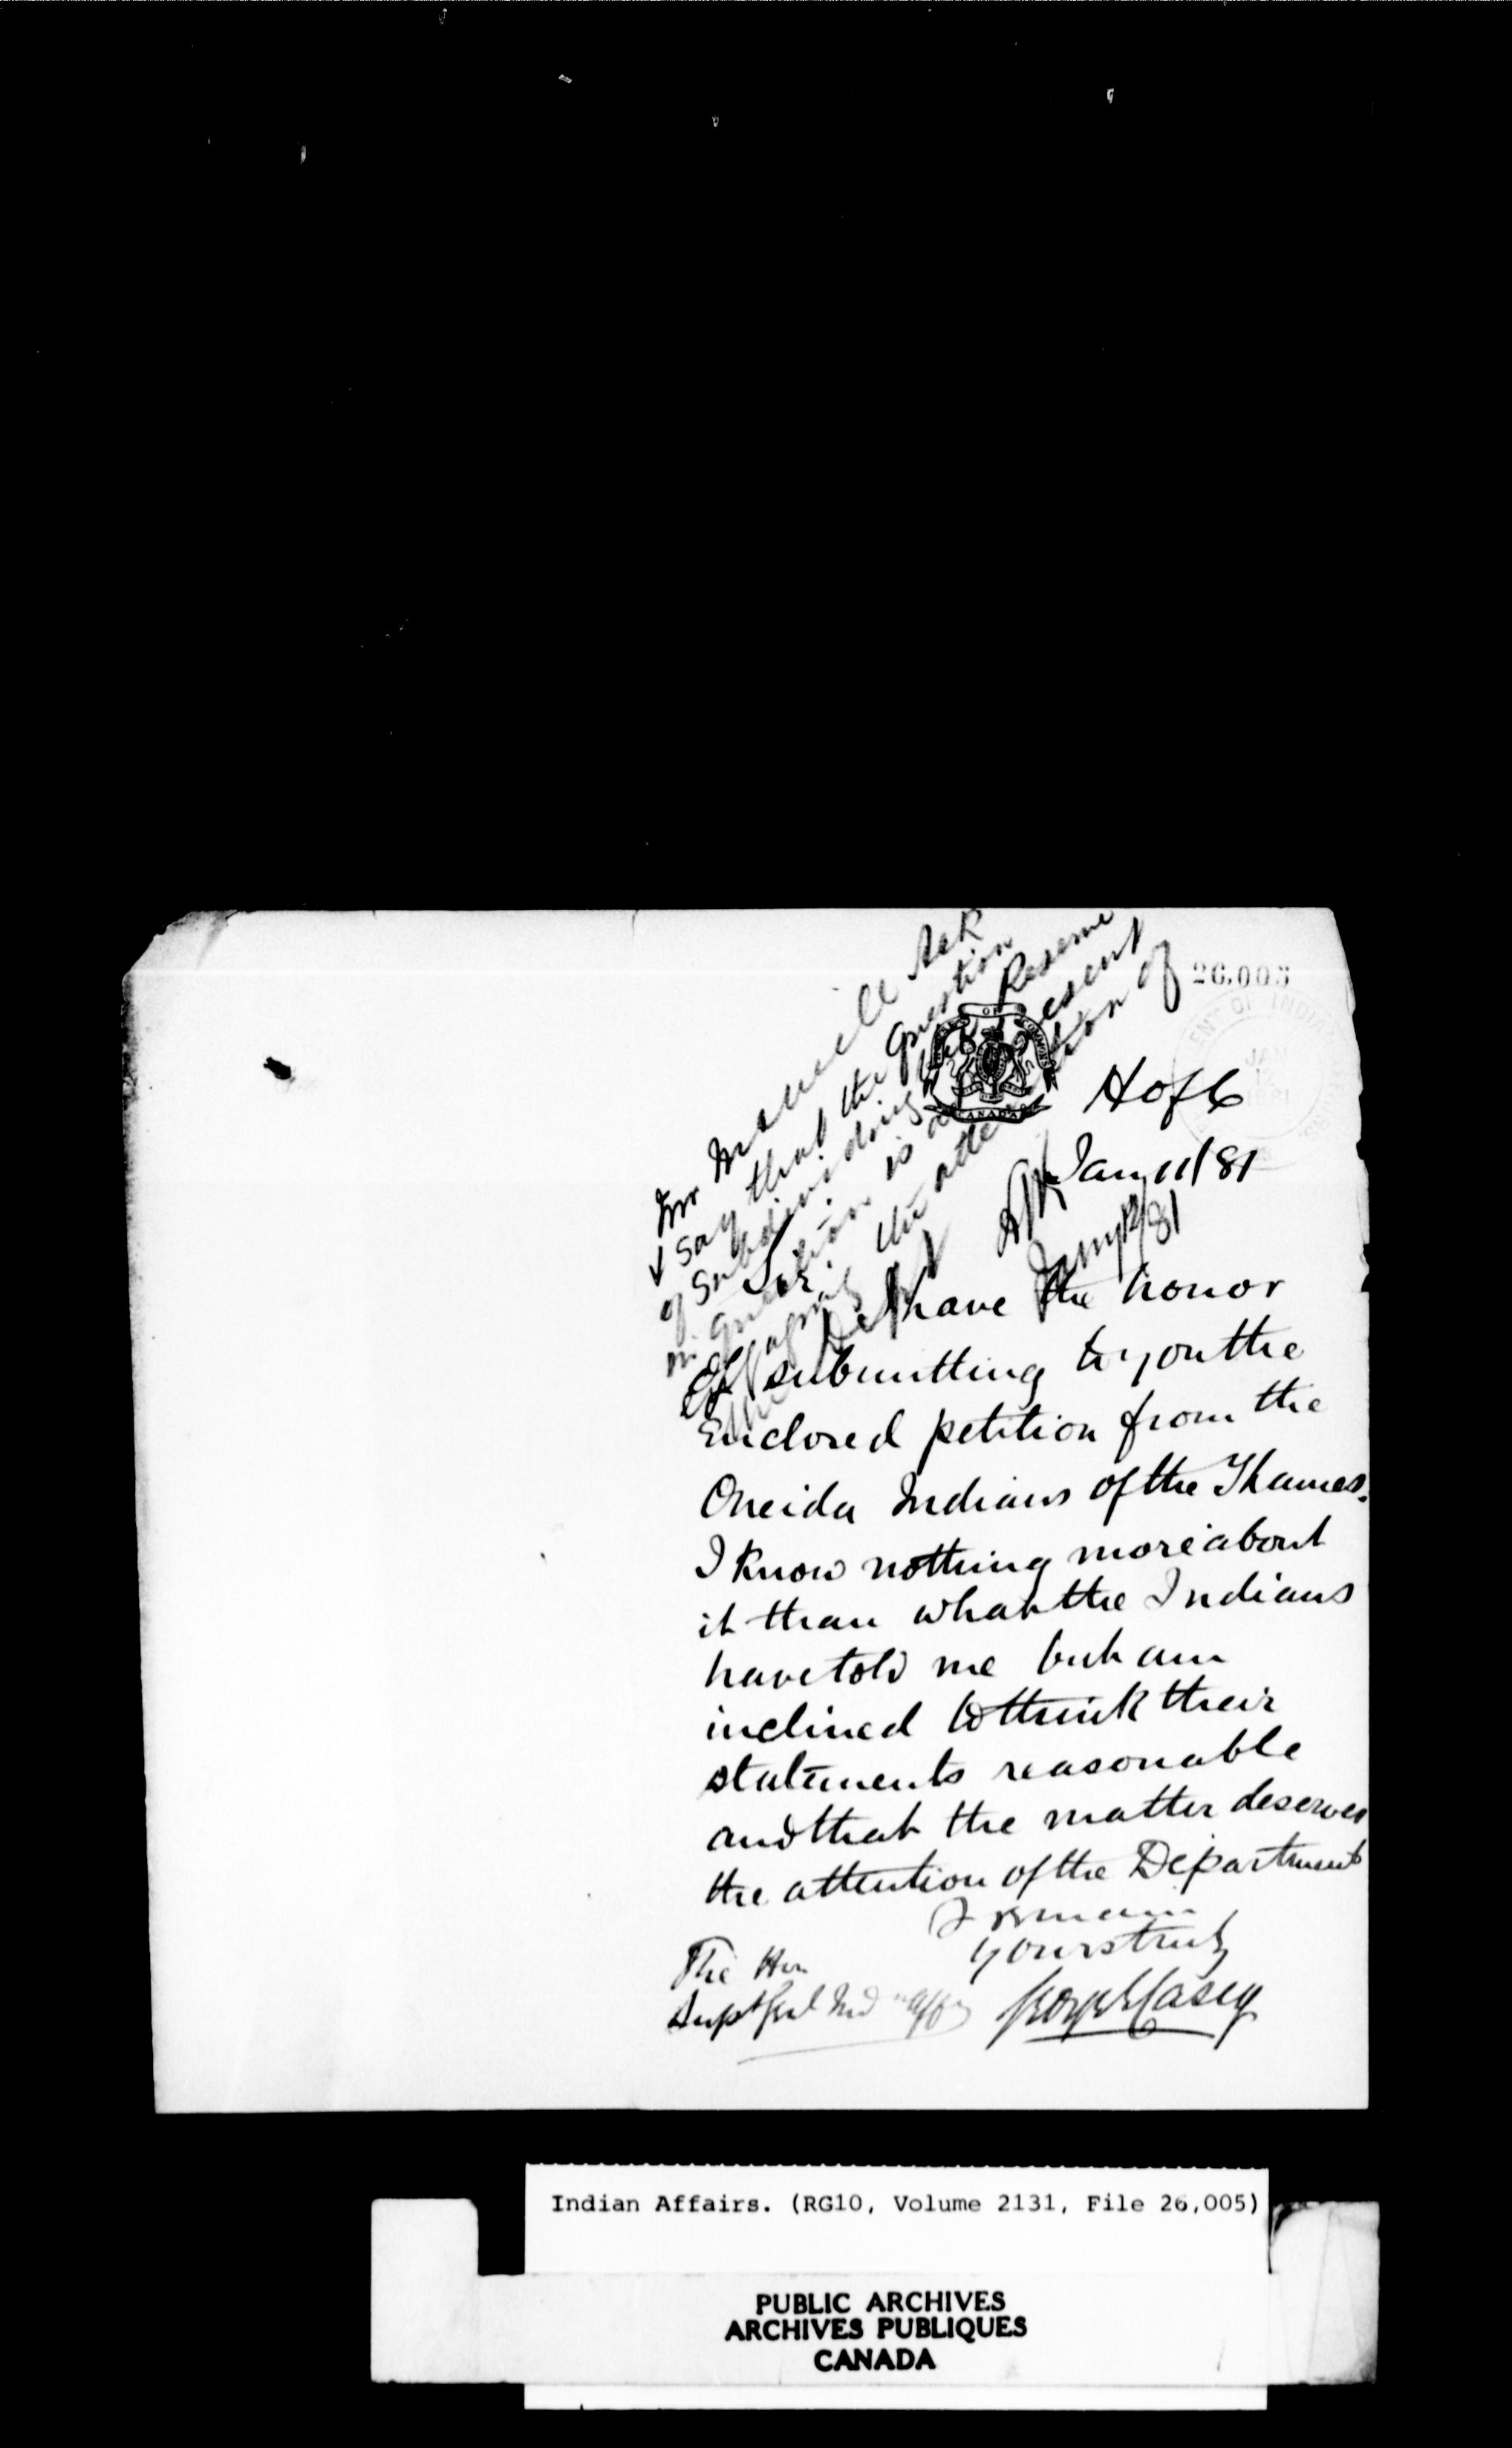 26.005
HOUSE OF COMMONS
CANADA
DEPARTMENT OF INDIAN AFFAIRS.
JAN
1881
H of C
Jan 11/81
Mr
Ack
& say that the question
of subdividing the Reserve
in question is at present
the attention of
the Dept
Jany 12/81
Sir,
I have the honor
of submitting to you the
Enclosed petition from the
Oneida Indians of the Thames.
I know nothing more about
it than what the Indians
have told me but am
inclined to think their
statements reasonable
and that the matter deserves
the attention of the Department
I remain
yours truly
George E Casey
The Hon
Supt Genl Ind Affrs
Indian Affairs. (RG10, Volume 2131, File 26,005)
PUBLIC ARCHIVES
ARCHIVES PUBLIQUES
CANADA